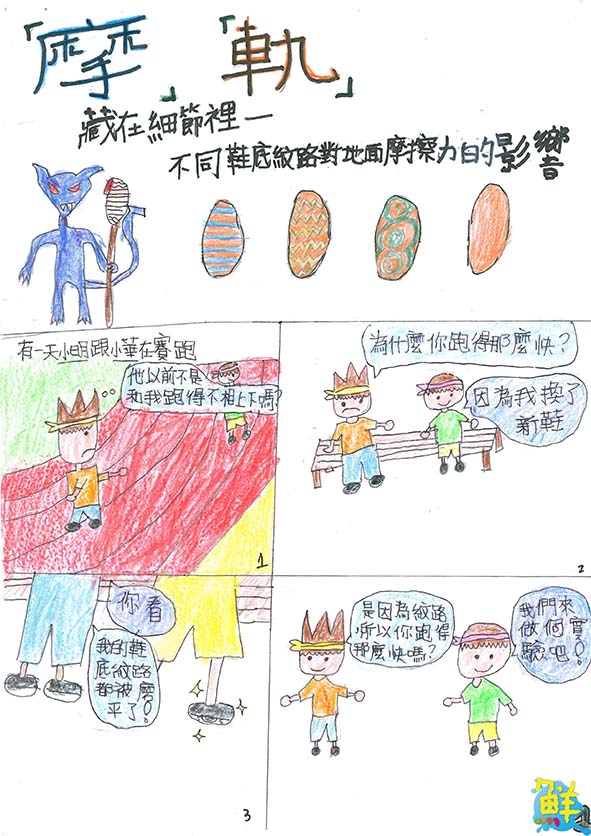 「摩」「軌」
藏在細節裡—
不同鞋底紋路對地面摩擦力的影響
有一天小明跟小華在賽跑
他以前不是
和我跑得不相上下嗎?
1
為什麼你跑得那麼快?
因為我換了
新鞋
2
你看
我的鞋
底紋路
都被磨
平了!
3
是因為紋路
所以你跑得
那麼快嗎?
我們來
做個實
驗吧!
鮮